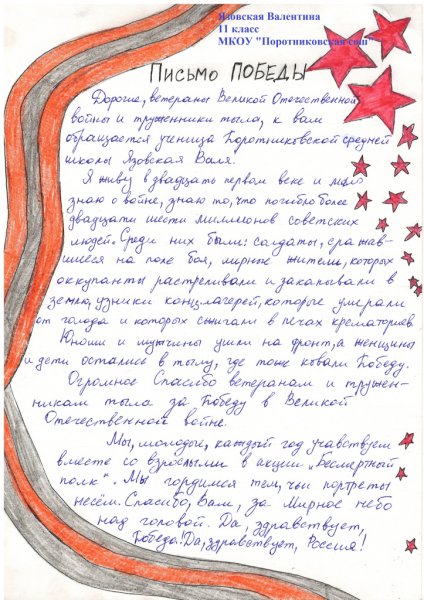 Язовская Валентина
11 класс
МКОУ "Поротниковская сош"
Письмо ПОБЕДЫ
Дорогие, ветераны Великой Отечественной
войны и труженники тыла, к вам
обращается ученица Поротниковской средней
школы Язовская Валя.
Я живу в двадцать первом веке и мало
знаю о войне, знаю то, что погибло более
двадцати шести миллионов советских
людей. Среди них были: солдаты, сражав-
шиеся на поле боя, мирные жители, которых
оккупанты растреливали и закапывали в
землю, узники концлагерей, которые умирали
от голода и которых сжигали в печах крематориев.
Юноши и мужчины ушли на фронт, а женщины
и дети остались в тылу, где тоже ковали Победу.
Огромное Спасибо ветеранам и тружен-
никам тыла за Победу в Великой
Отечественной войне.
Мы, молодёжь, каждый год учавствуем
вместе со взрослыми в акции „Бессмертный
полк". Мы гордимся тем, чьи портреты
несём. Спасибо, Вам, за Мирное небо
над головой. Да, здравствует,
Победа! Да, здравствует, Россия!